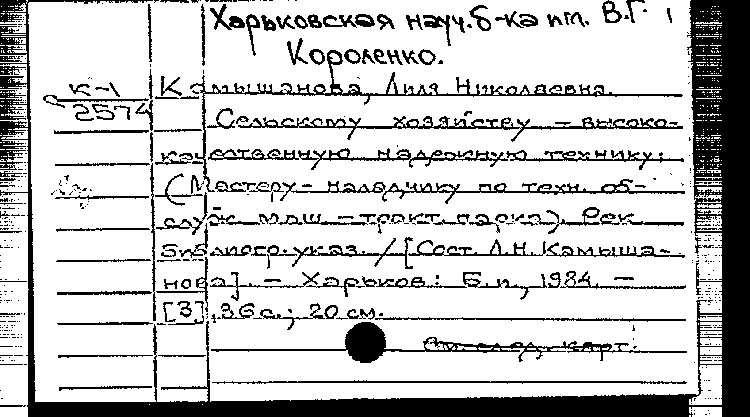 Харьковская науч. б-ка им. В.Г.
Короленко.
К-1
2574
Камышанова, Лиля Николаевна.
Сельскому хозяйству – высоко-
качественную надежную технику:
(Мастеру-наладчику по техн. об-
служ. маш.-тракт. парка). Рек.
библиогр. указ. / [Сост. Л.Н. Камыша-
нова]. – Харьков: Б.и., 1984. –
[3], 36 с.; 20 см.
См. след. карт.